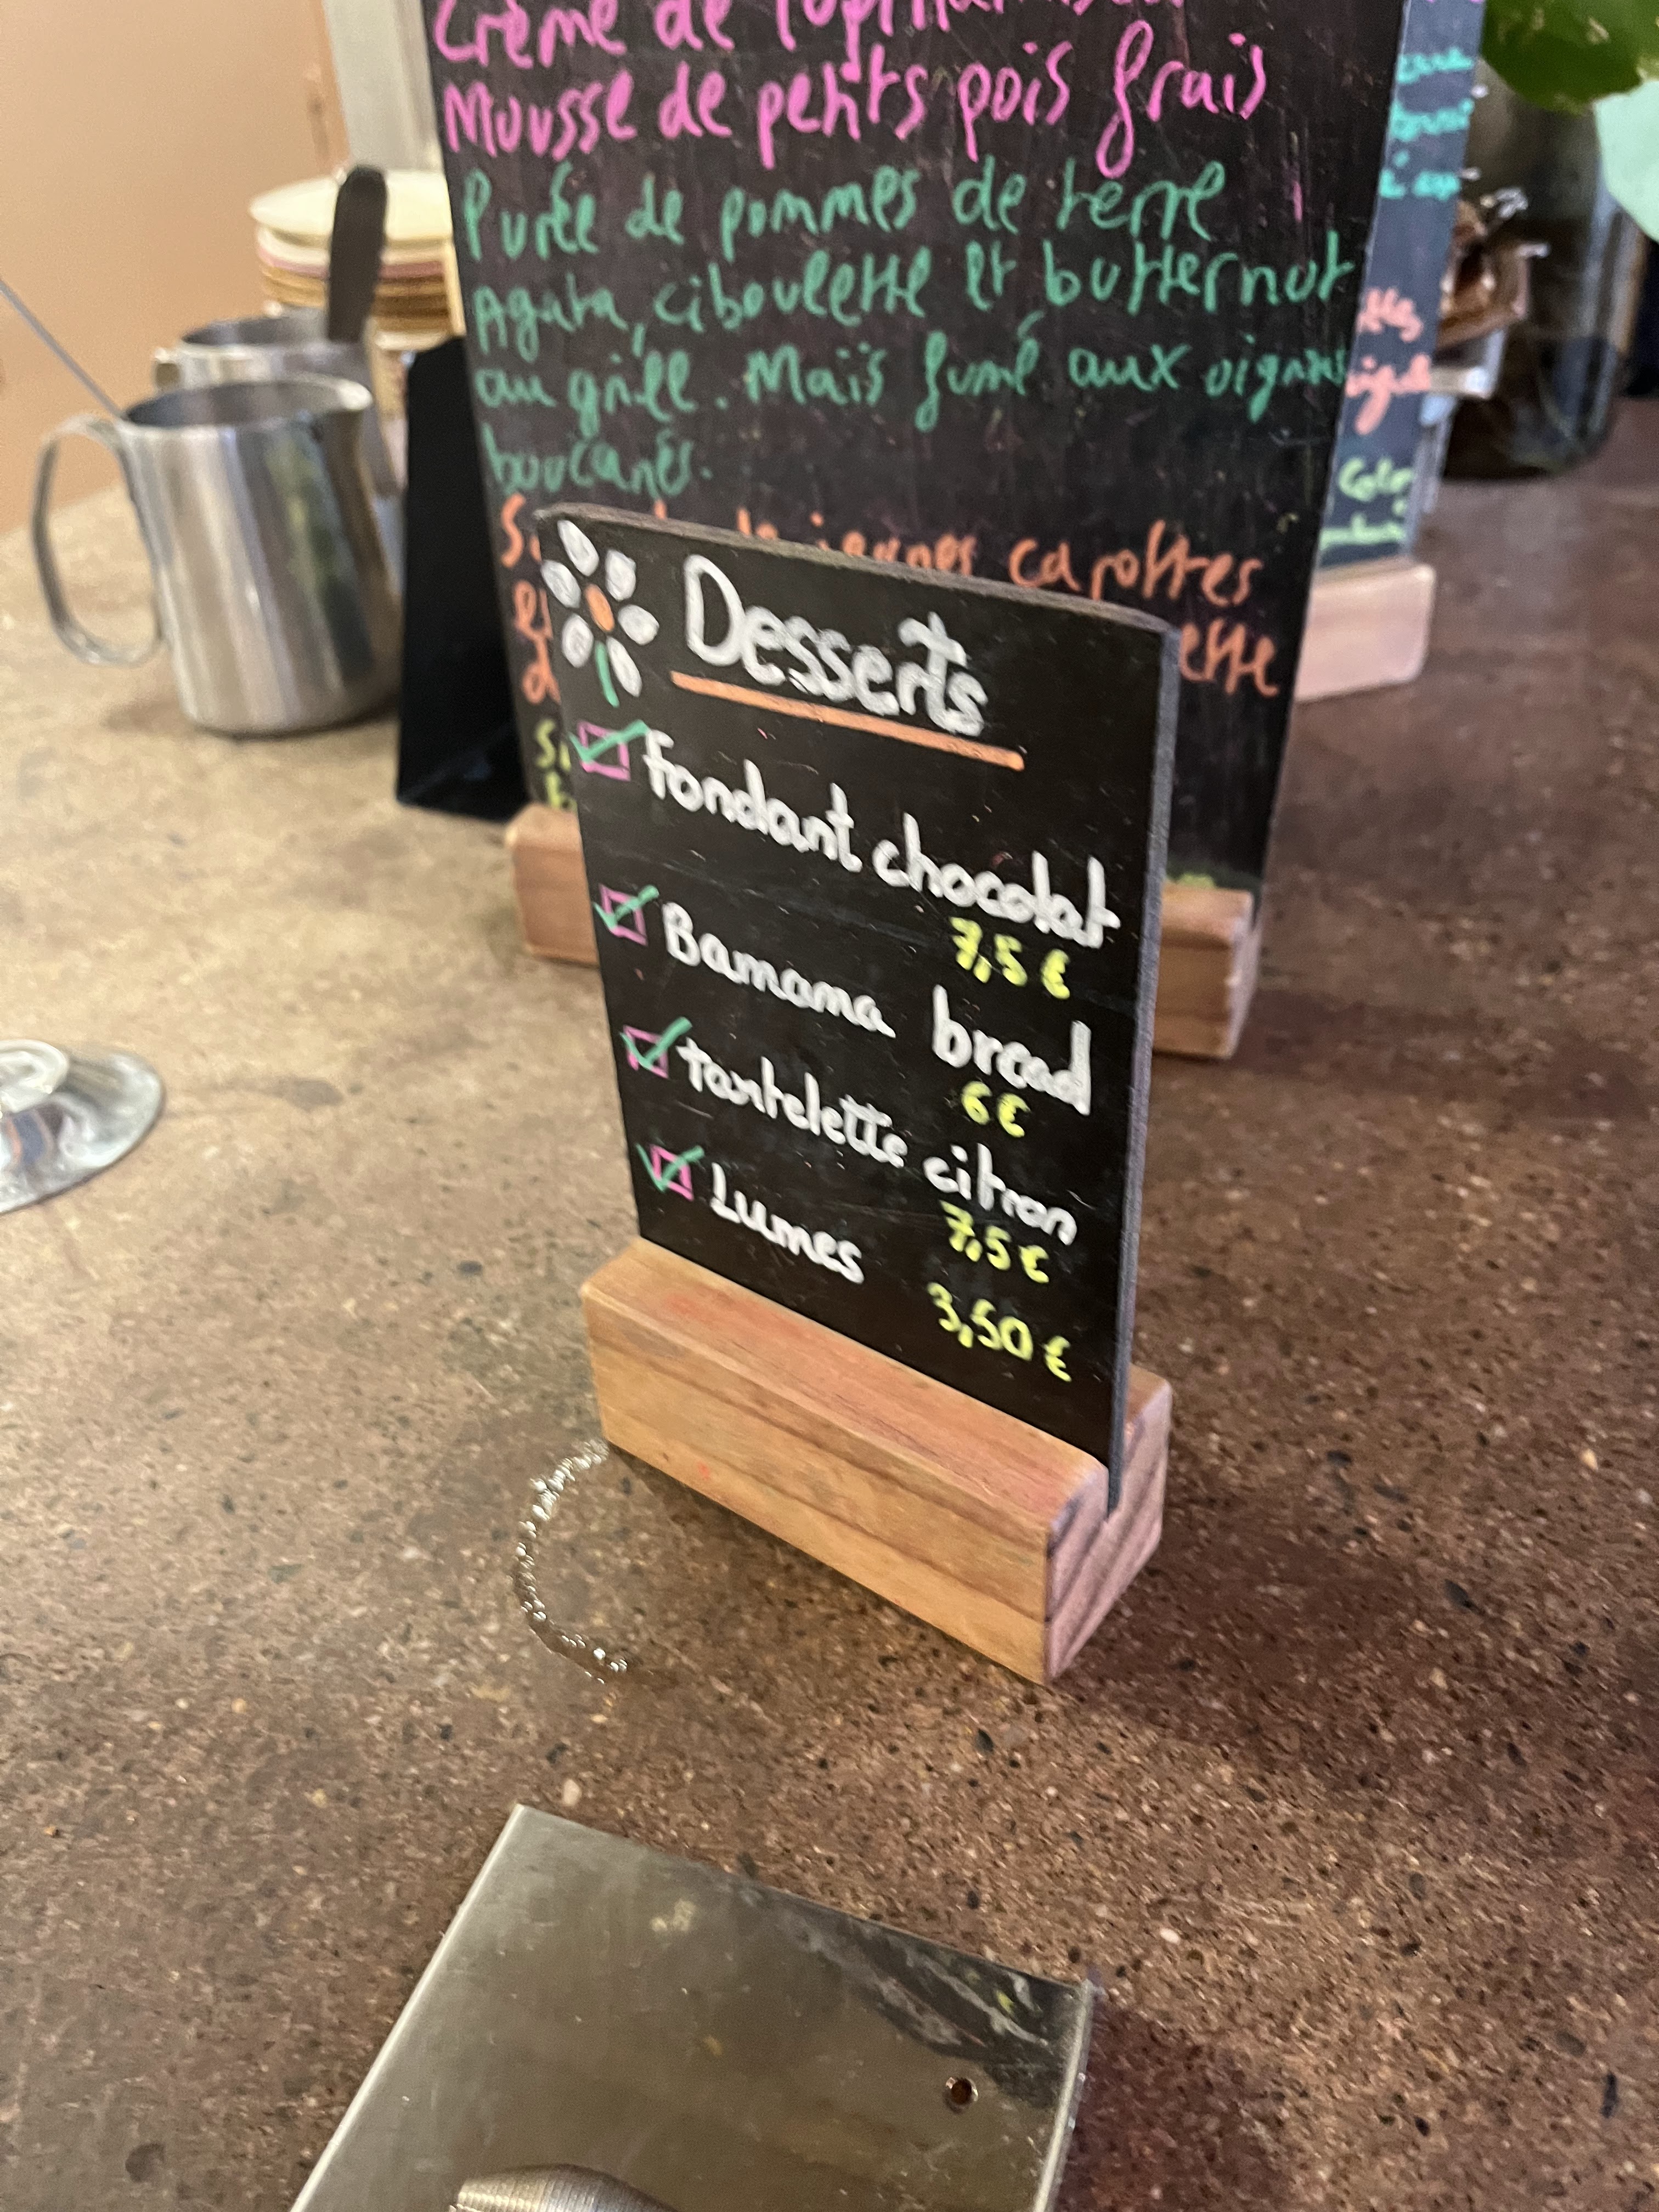 Crème de
Mousse de petits pois frais
Purée de pommes de terre
Agata, ciboulette et butternut
au grill. Maïs fumé aux oignons
boucanés.
de jeunes carottes
Desserts
fondant chocolat
7,5 €
Banana bread
6 €
tartelette citron
7,5 €
Lumes
3,50 €